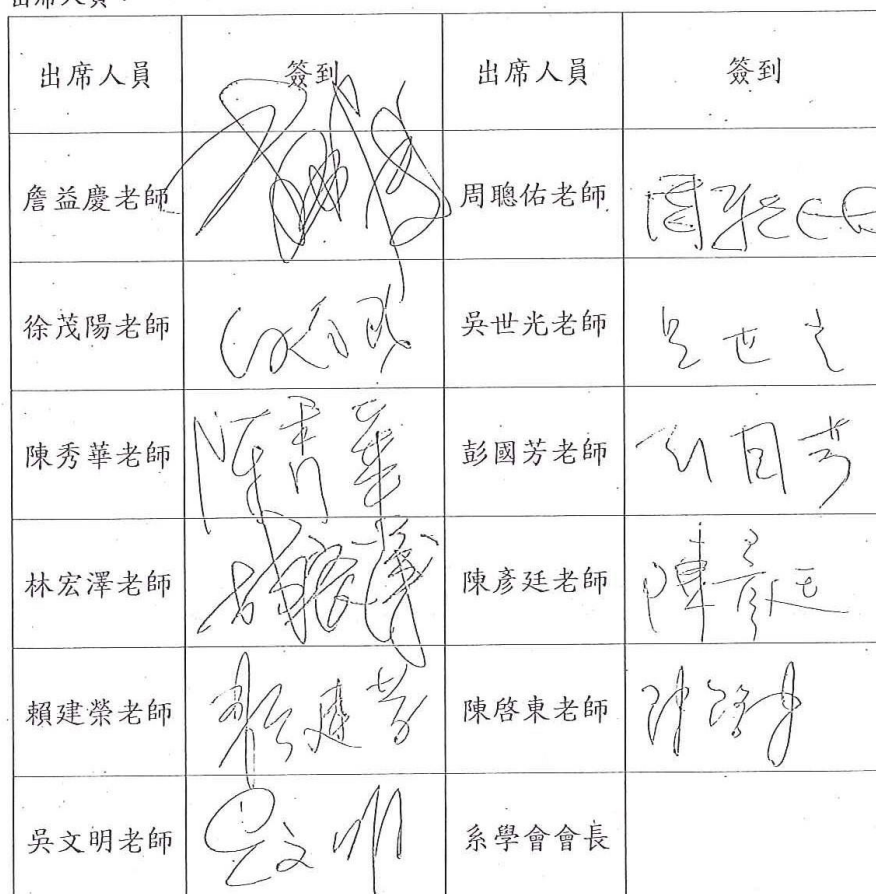 出席人員：
出席人員 簽到 出席人員 簽到
詹益慶老師 周聰佑老師 周聰佑
徐茂陽老師 吳世光老師 吳世光
陳秀華老師 陳秀華 彭國芳老師
林宏澤老師 林宏澤 陳彥廷老師 陳彥廷
賴建榮老師 賴建榮 陳啓東老師 陳啓東
吳文明老師 吳文明 系學會會長